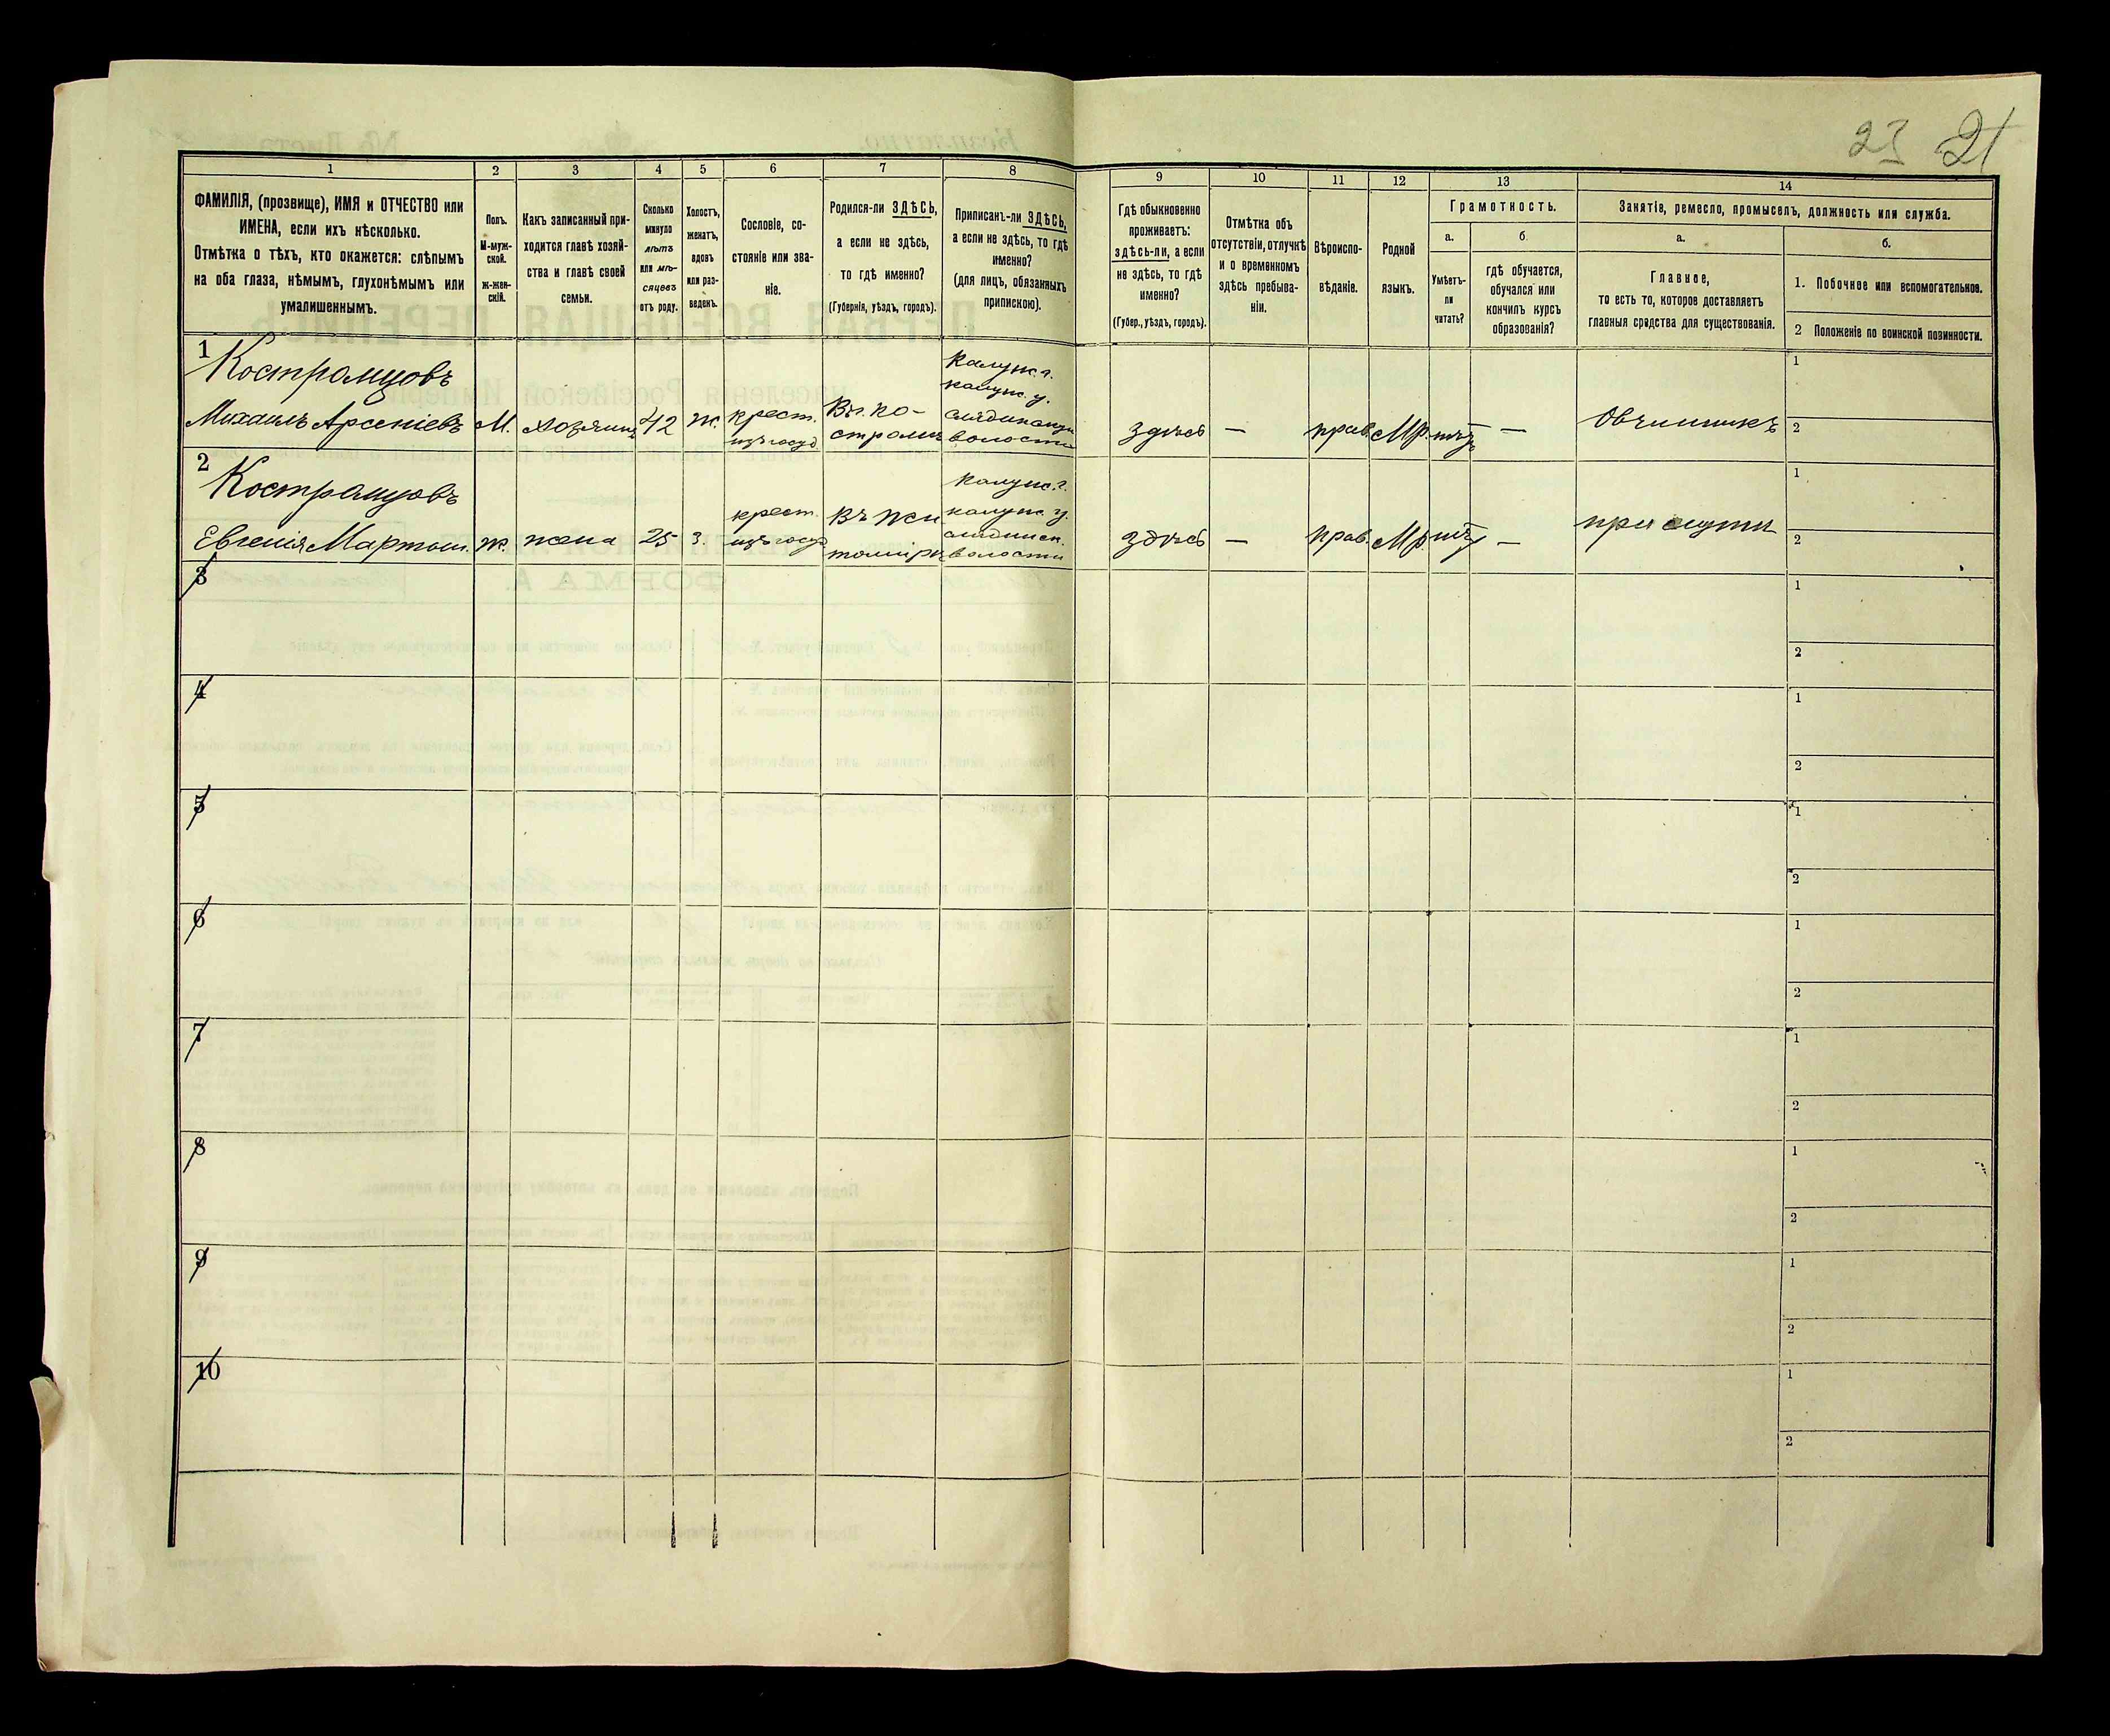 23 21
1
2
3
4
5
6
7
8
ФАМИЛІЯ, (прозвище), ИМЯ и ОТЧЕСТВО или
ИМЕНА, если ихъ нѣсколько.
Отмѣтка о тѣхъ, кто окажется: слѣпымъ
на оба глаза, нѣмымъ, глухонѣмымъ или
умалишеннымъ.
Полъ.
М-муж-
ской.
ж-жен-
скій.
Какъ записанный при-
ходится главѣ хозяй-
ства и главѣ своей
семьи.
Сколько
минуло
лѣтъ
или мѣ-
сяцевъ
отъ роду.
Холостъ,
женатъ,
вдовъ
или раз-
веденъ.
Сословіе, со-
стояніе или зва-
ніе.
Родился-ли ЗДѢСЬ,
а если не здѣсь,
то гдѣ именно?
(Губернія, уѣздъ, городъ).
Приписанъ-ли ЗДѢСЬ,
а если не здѣсь, то гдѣ
именно?
(для лицъ, обязанныхъ
припискою).
9
10
11
12
13
14
Гдѣ обыкновенно
проживаетъ:
здѣсь-ли, а если
не здѣсь, то гдѣ
именно?
(Губер., уѣздъ, городъ).
Отмѣтка объ
отсутствіи, отлучкѣ
и о временномъ
здѣсь пребыва-
ніи.
Вѣроиспо-
вѣданіе.
Родной
языкъ.
Грамотность.
а.
б.
Умѣетъ-
ли
читать?
гдѣ обучается,
обучался или
кончилъ курсъ
образованія?
Занятіе, ремесло, промыселъ, должность или служба.
а.
б.
Главное,
то есть то, которое доставляетъ
главныя средства для существованія.
1. Побочное или вспомогательное.
2 Положеніе по воинской повинности.
1
Костромцовъ
Михаилъ Арсеніевъ
М.
хозяинъ
42
ж.
крест.
изъ госуд
Въ г. Ко-
стромѣ
Калуж. г.
калуж. у.
волости
здѣсь
—
прав.
Мр.
нѣтъ
—
Овчинникъ
1
2
2
Костромцовъ
Евгенія Мартын.
ж.
жена
25
з.
крест.
изъ госуд
Въ Жи
томірѣ
Калуж. г.
калуж. у.
волости
здѣсь
—
прав.
Мр
нѣтъ
—
при мужѣ
1
2
3
1
2
4
1
2
5
1
2
6
1
2
7
1
2
8
1
2
9
1
2
10
1
2